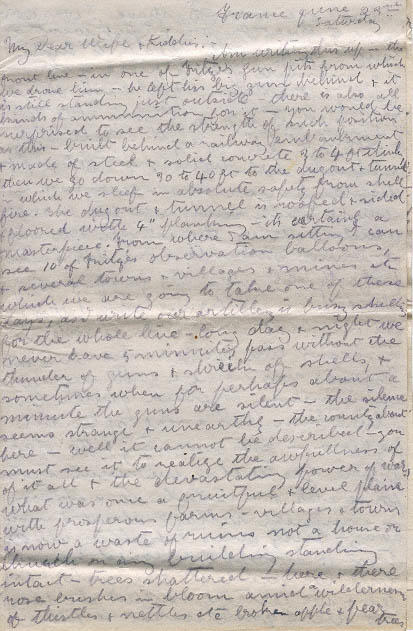 France June 23rd
Saturday
My dear Wife & Kiddies: - I am writing this up - the
front line - in one of Fritz's gun pits from which
we drove him - he left his big guns behind & it
is still standing just outside there is also all
kinds of ammunition for it - you would be
surprised to see the strength of such position
as this - built behind a railway embankment
& made of steel & solid concrete 3 to 4 ft thick
then we go down 30 to 40 ft to the dugout & tunnel
- which we sleep in absolute safety from shell
fire. The dugout & tunnel is roofed & sided
floored with 4" planking - its certainly a
masterpiece. From where I am sitting I can
see 10 of Fritzies observation balloons,
& several towns & villages & mines etc
which we are going to take one of these
days, as I write our artillery is busy shelling
for the whole line - long day & night we
never have 5 minutes pass without the
thunder of guns & shriek of shells, &
sometimes when for perhaps about a
minute the guns are silent - the silence
seems strange & unearthly - the country about
here - well it cannot be described - you
must see it to realize the awfullness of
of it all & the devastating power of war,
what was once a fruitful & level plane
with prosperous farms - villages & towns
is now a waste of ruins not a house or
church or any building standing
intact - trees shattered - here & there
rose bushes in bloom amid wilderness
of thistles & nettles etc broken apple & pear
trees